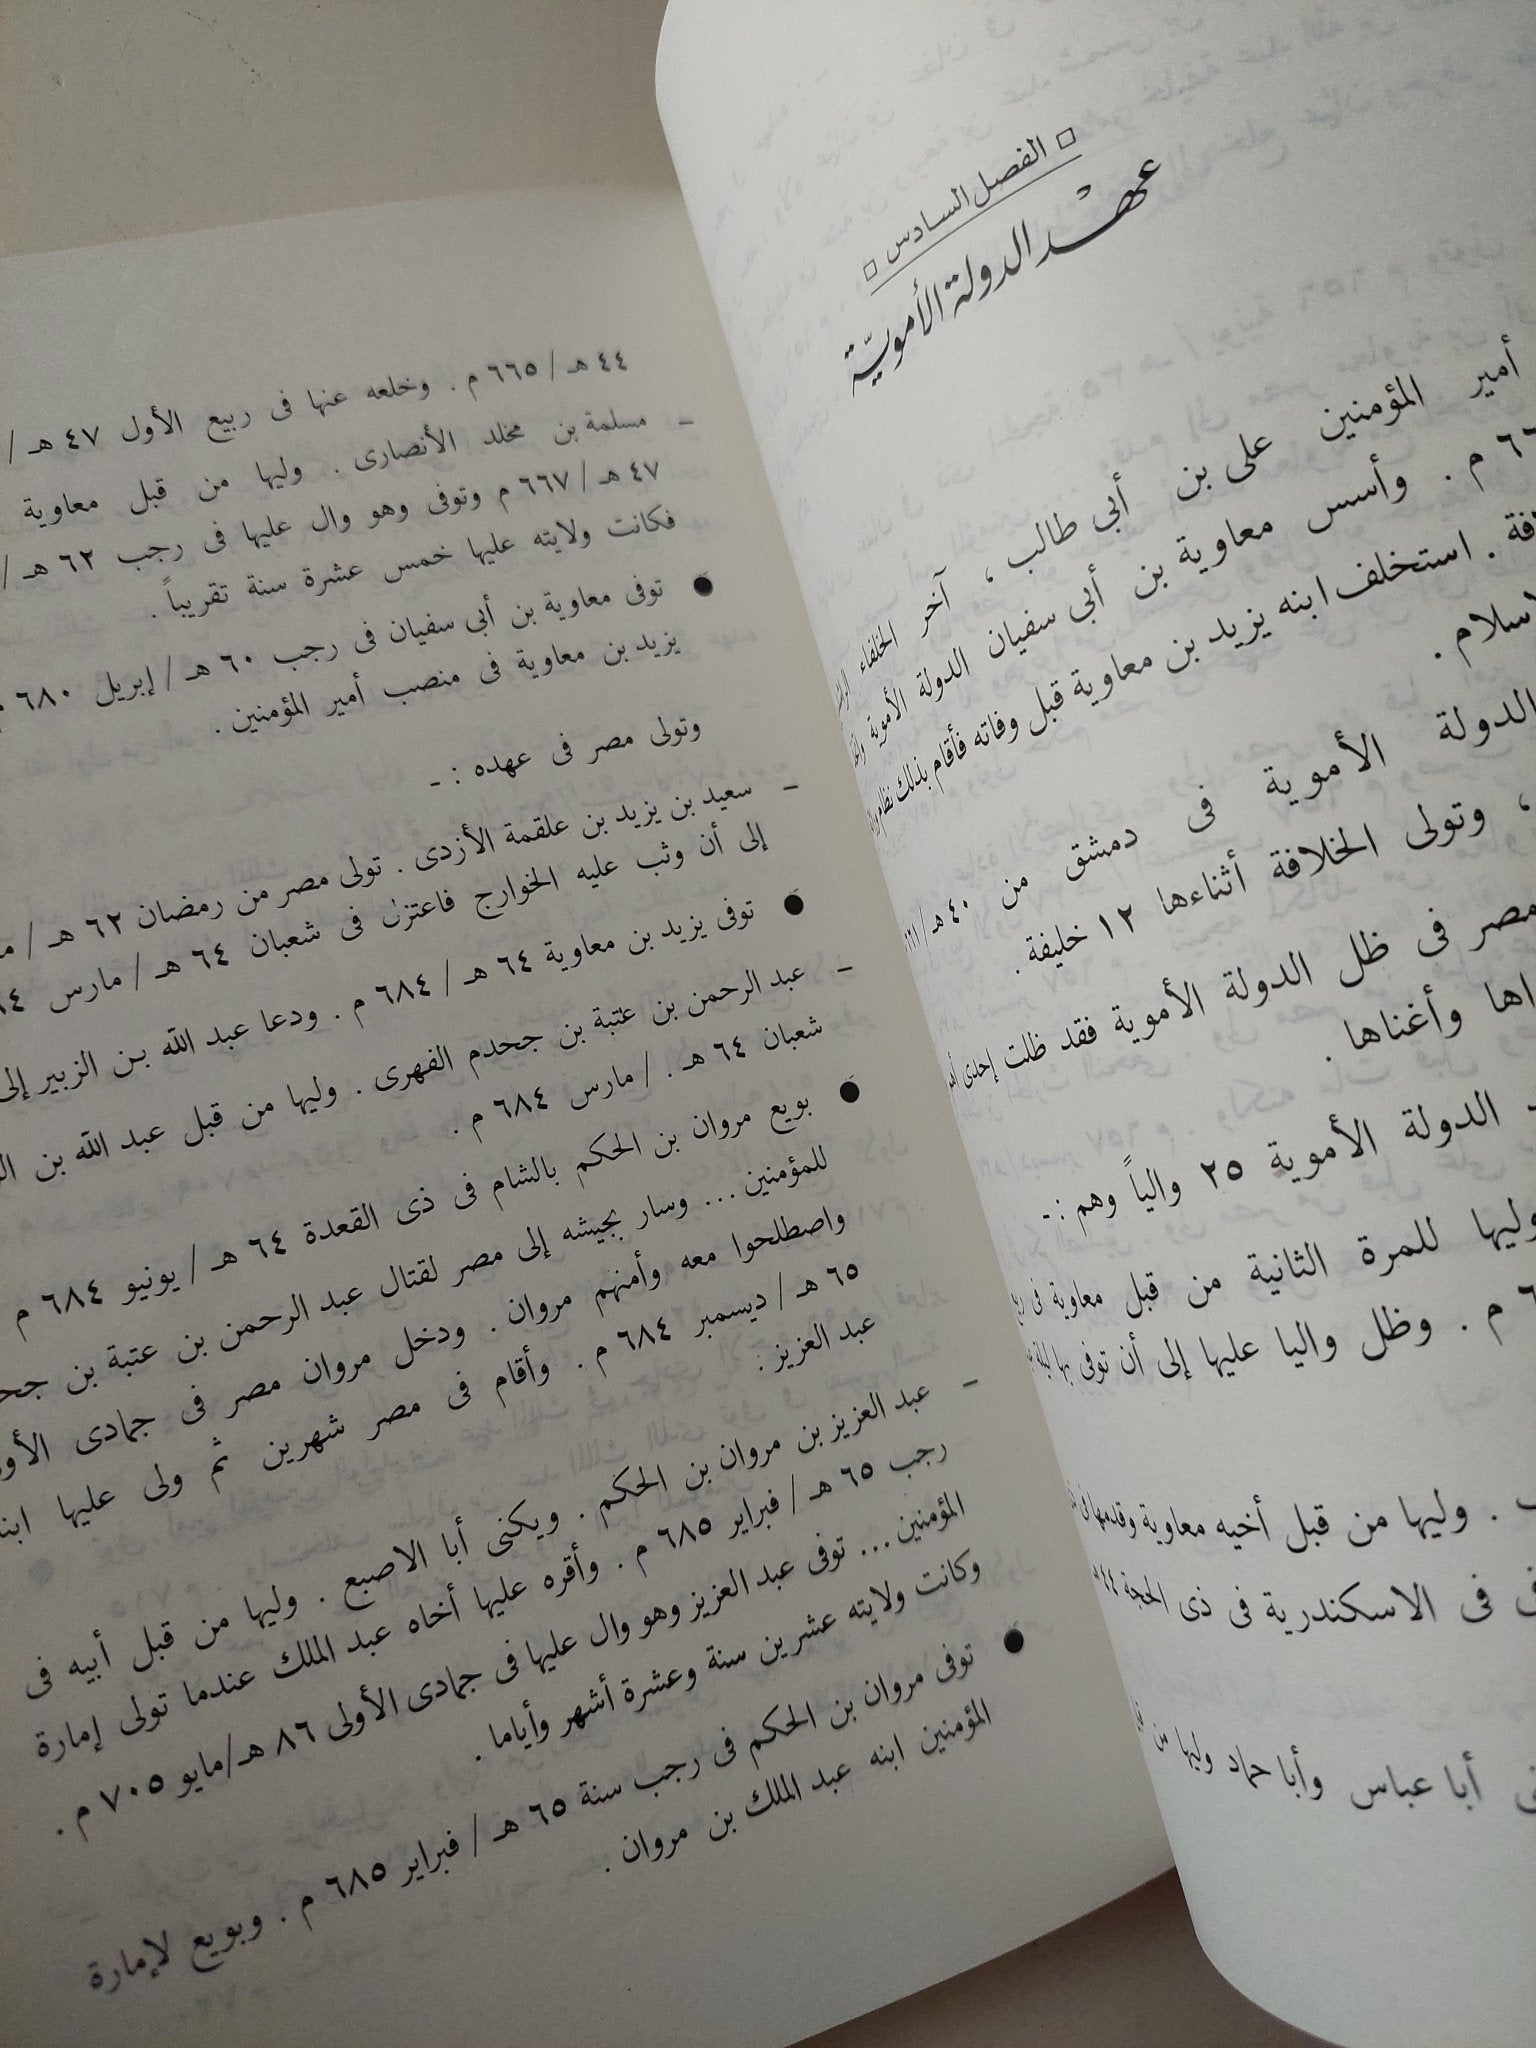 الفصل السادس
عهد الدولة الأمويّة
أمير المؤمنين على بن أبى طالب ، آخر الخلفاء
م . وأسس معاوية بن أبى سفيان الدولة الأموية
. استخلف ابنه يزيد بن معاوية قبل وفاته فأقام بذلك نظام
.
الدولة الأموية فى دمشق من ٤٠ هـ /
، وتولى الخلافة أثناءها ١٢ خليفة .
مصر فى ظل الدولة الأموية فقد ظلت إحدى
وأغناها .
الدولة الأموية ٢٥ والياً وهم :-
وليها للمرة الثانية من قبل معاوية فى
م . وظل واليا عليها إلى أن توفى بها ليلة
. وليها من قبل أخيه معاوية وقدمها فى
فى الاسكندرية فى ذى الحجة ٤٤
أبا عباس وأبا حماد وليها من
٤٤ هـ / ٦٦٥ م . وخلعه عنها فى ربيع الأول ٤٧ هـ /
– مسلمة بن مخلد الأنصارى . وليها من قبل معاوية
٤٧ هـ / ٦٦٧ م وتوفى وهو وال عليها فى رجب ٦٢ هـ /
فكانت ولايته عليها خمس عشرة سنة تقريباً .
● توفى معاوية بن أبى سفيان فى رجب ٦٠ هـ / إبريل ٦٨٠
يزيد بن معاوية فى منصب أمير المؤمنين .
وتولى مصر فى عهده : -
– سعيد بن يزيد بن علقمة الأزدى . تولى مصر من رمضان ٦٢ هـ /
إلى أن وثب عليه الخوارج فاعتزل فى شعبان ٦٤ هـ / مارس
● توفى يزيد بن معاوية ٦٤ هـ / ٦٨٤ م . ودعا عبد الله بن الزبير إلى
– عبد الرحمن بن عتبة بن جحدم الفهرى . وليها من قبل عبد الله بن
شعبان ٦٤ هـ . / مارس ٦٨٤ م .
● بويع مروان بن الحكم بالشام فى ذى القعدة ٦٤ هـ / يونيو ٦٨٤ م
للمؤمنين ... وسار بجيشه إلى مصر لقتال عبد الرحمن بن عتبة بن
واصطلحوا معه وأمنهم مروان . ودخل مروان مصر فى جمادى
٦٥ هـ / ديسمبر ٦٨٤ م . وأقام فى مصر شهرين ثم ولى عليها
عبد العزيز :
– عبد العزيز بن مروان بن الحكم . ويكنى أبا الاصبع . وليها من قبل أبيه فى
رجب ٦٥ هـ / فبراير ٦٨٥ م . وأقره عليها أخاه عبد الملك عندما تولى إمارة
المؤمنين ... توفى عبد العزيز وهو وال عليها فى جمادى الأولى ٨٦ هـ/مايو ٧٠٥ م .
وكانت ولايته عشرين سنة وعشرة أشهر وأياما .
● توفى مروان بن الحكم فى رجب سنة ٦٥ هـ / فبراير ٦٨٥ م . وبويع لإمارة
المؤمنين ابنه عبد الملك بن مروان .